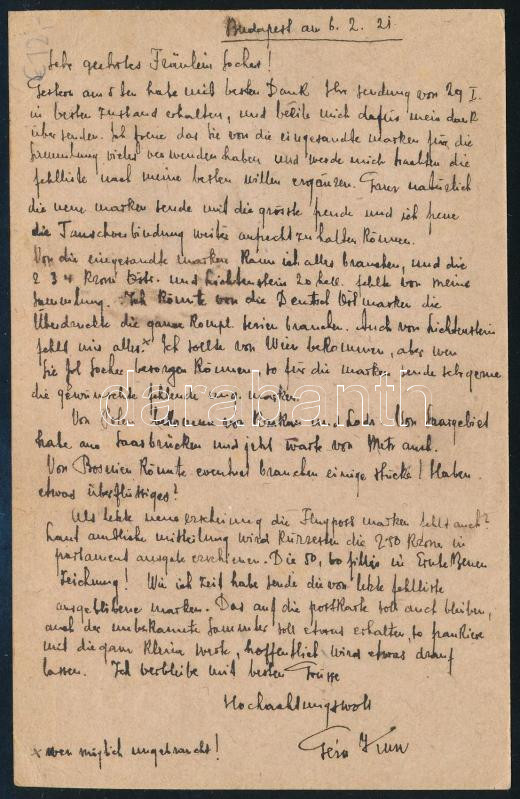 Budapest am 6. 2. 21.
Sehr geehrtes Fräulein
Gestern am 5 ten habe mit besten Dank Ihr sendung von 29 I.
in besten zustand erhalten, und beeile mich dafür mein dank
übersenden. Ich freue das Sie von die eingesandte marken für die
Sammlung vieles verwenden haben und werde mich trachten die
fehlliste nach meine besten willen ergänzen. Ganz natürlich
die neue marken sende mit die grösste freude und ich freue
die Tauschverbindung weiter aufrecht zu halten können.
Von die eingesandte marken kann ich alles brauchen, und die
2 3 4 Kron und Lichtenstein 20 hell. fehlte von meine
sammlung. Ich könnte von die Deutsch marken die
Überdruckte die ganze kompl. serien brauchen. Auch von Lichtenstein
fehlt mir alles.x Ich sollte von Wien bekommen, aber wen
Sie besorgen können, so für die marken sende sehr gerne
die gewünschte fehlende ung. marken.
Von bekommen von und Lodz. Von Saargebiet
habe aus Saarbrücken und jetzt warte von Metz auch.
Von Bosnien könnte eventuel brauchen einige stücke! Haben
etwas überflüssiges?
Als letzte neue erscheinung die Flugpost marken fehlt auch?
Laut amtliche mitteilung wird kürzestens die 2.50 Krone in
parlament ausgabe erschienen. Die 50, 60 fillér in
zeichnung! Wie ich zeit habe sende die von letzte fehlliste
ausgebliebene marken. Das auf die postkarte soll auch bleiben,
auch der unbekannte Sammler soll etwas erhalten, so frankiere
mit die ganz kleine werte, hoffentlich wird etwas drauf
lassen. Ich verbleibe mit besten Grüsse
Hochachtungsvoll
Géza
x wen möglich ungebraucht!
darabanth